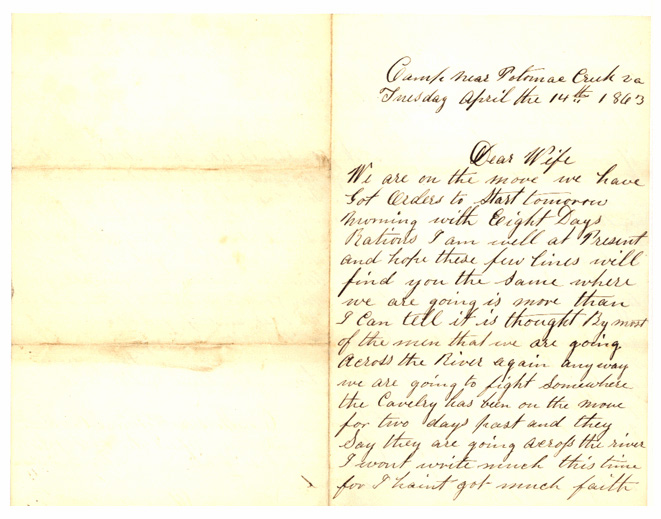 Camp near Potomac Creek va
Tuesday April the 14th 1863
Dear Wife
We are on the move we have
Got Orders to Start tomorrow
morning with Eight Days
Rations I am well at Present
and hope these few lines will
find you the Same where
we are going is more than
I Can tell it is thought By most
of the men that we are going
across the River again anyway
we are going to fight Somewhere
the Cavelry has been on the move
for two days past and they
Say they are going across the river
I wont write much this time
for I haint got much faith